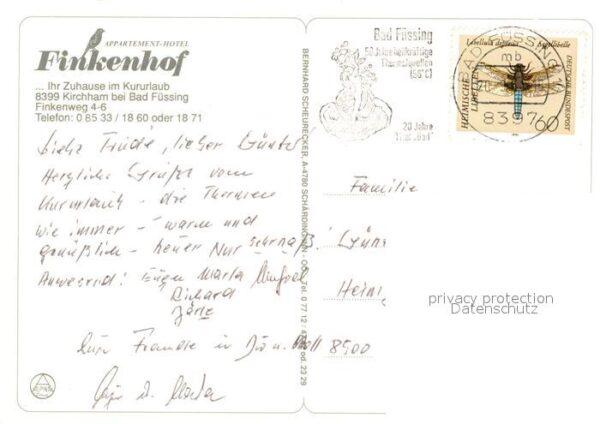 APPARTEMENT-HOTEL
Finkenhof
... Ihr Zuhause im Kururlaub
8399 Kirchham bei Bad Füssing
Finkenweg 4-6
Telefon: 0 85 33 / 18 60 oder 18 71
Liebe Trude, lieber Günter!
Herzliche Grüße vom
Kururlaub - die Thermen
wie immer - warm und
genüßlich - heuer Nur sehr naß!
Anwesend: Eugen Maria Manfred
Richard
Eure Freunde in
BERNHARD SCHEURECKER, A-4780 SCHÄRDING/INN - OÖ, Tel. 0 77 12 / 47 od. 23 29
Bad Füssing
50 Jahre heilkräftige
Thermalquellen
(56°C)
20 Jahre
BAD FÜSSING
mb
8397
Libellula depressa Plattbauch
HEIMISCHE
LIBELLEN
DEUTSCHE BUNDESPOST
60
Familie
Gün
Hein
8500
privacy protection
Datenschutz